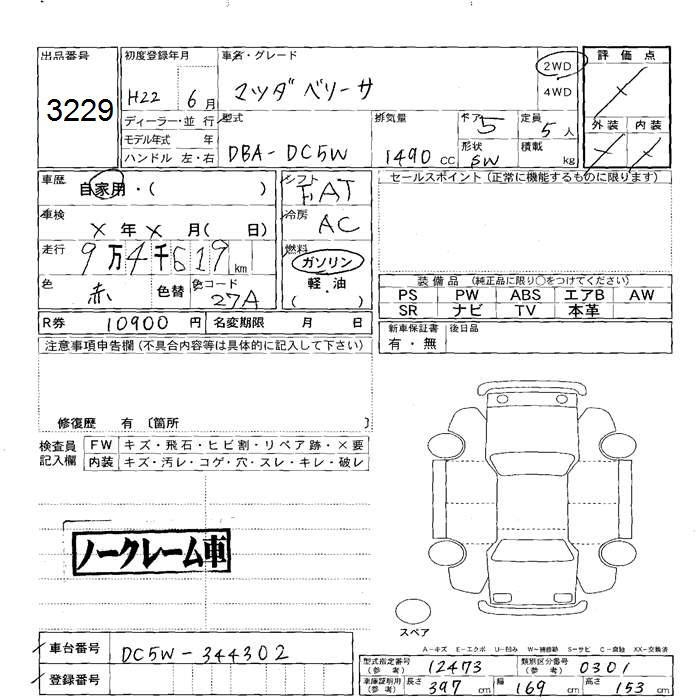 出品番号 初度登録年月 車名・グレード 2WD 評価点
3229 H22 6月 マツダベリーサ 4WD
ディーラー・並行 型式 排気量 ドア 5 定員 5人 外装 内装
モデル年式 年 DBA-DC5W 1490cc 形状 SW 積載 kg
ハンドル 左・右
車歴 自家用・( ) シフト FAT セールスポイント(正常に機能するものに限ります)
車検 X年X月( 日) 冷房 AC
走行 9万4千619km 燃料 ガソリン
軽・油
( )
色 赤 色替 色コード 27A
装備品 (純正品に限り○をつけてください)
PS PW ABS エアB AW
SR ナビ TV 本革
R券 10900円 名変期限 月 日
新車保証書 後日品
有・無
注意事項申告欄(不具合内容等は具体的に記入して下さい)
修復歴 有 〔箇所 〕
検査員記入欄 FW キズ・飛石・ヒビ割・リペア跡・×要
内装 キズ・汚レ・コゲ・穴・スレ・キレ・破レ
ノークレーム車
スペア
A-キズ E-エクボ U-凹み W-補修跡 S-サビ C-腐蝕 XX-交換済
車台番号 DC5W-344302
登録番号
型式指定番号(参考) 12473 類別区分番号(参考) 0301
車庫証明用(参考) 長さ 397cm 幅 169cm 高さ 153cm